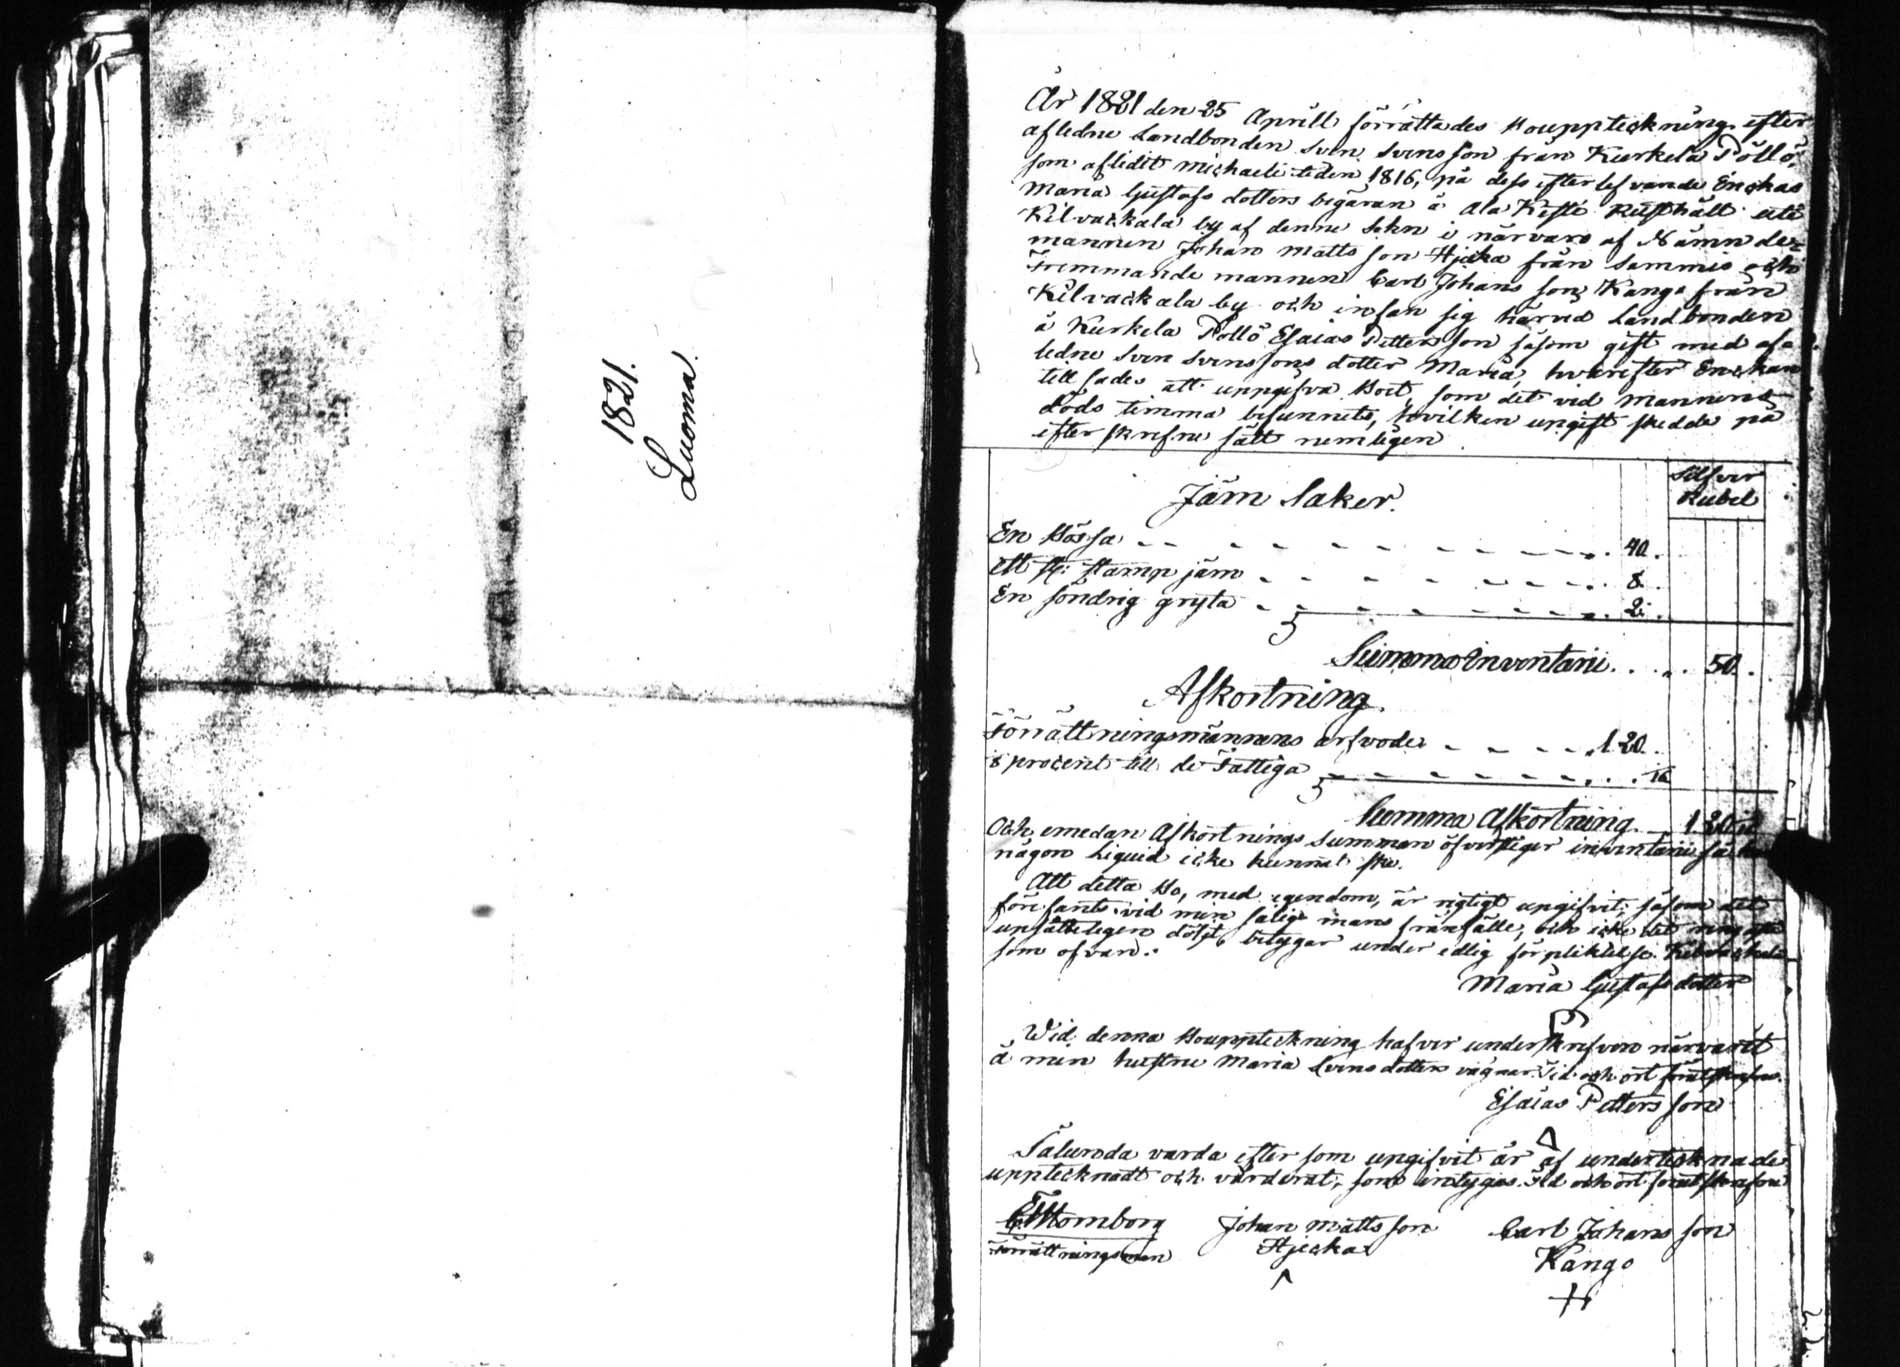 1821.
Luoma.
År 1821 den 25 Aprill förrättades Bouppteckning efter
afledne Landbonden Sven Svensson från Kurkela Pöllö,
som aflidit Michaeli tiden 1816, på dess efterlefvande Enckas
Maria Gustafs dotters begäran å Ala Kesti Rusthåll uti
Kilvackala by af denne Sokn i närvaro af Nämnde-
mannen Johan Matts son Hjecka från Sammis och
Främmande mannen Carl Johans son Kango från
Kilvackala by och infan sig härvid Landbonden
å Kurkela Pöllö Esaias Petters son såsom gift med af-
ledne Sven Svenssons dotter Maria, hvarefter Enckan
till sades att uppgifva Boet, som det vid Mannens
döds timma befunnets, hvilken upgift skedde på
efter skrefne sätt nemligen
Silfver
Rubel
Järn Saker.
En Bössa . 40.
Ett st: stamp järn . 8.
En söndrig gryta . 2.
Summa Inventarii . . . 50.
Afkortning
Förrättningsmännens arfvode . 1 20.
procent till de Fattiga
Summa Afkortning 1 20
Och emedan Afkortnings summan öfverstiger inventarii så
någon Liquid icke kunnat ske.
Att detta Bo, med egendom, är rigtigt upgifvit, såsom det
före fants vid min salig mans frånfälle, och icke det ringaste
upsåteligen döljt, betygar under edlig förpliktelse. Kilvackala
som ofvan.
Maria Gustafs dotter
Wid denna Bouppteckning hafver underskrefven närvarit
å min hustru Maria Svens dotters vägnar. Tid och ort förutskrefne.
Esaias Petters son
Sålunda varda efter som upgifvit är af undertecknade
upptecknadt och värderat, som intygas. Tid och ort förutskrefne
Förrättningsman
Johan Matts son
Hjecka
Carl Johans son
Kango